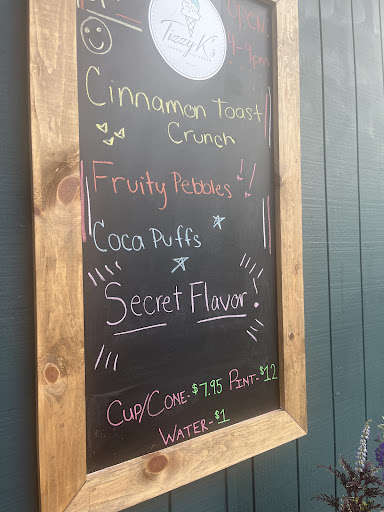 Tizzy K's
OPEN
4-9pm
Cinnamon Toast
Crunch
Fruity Pebbles!!
Coca Puffs
Secret Flavor!
Cup/Cone-$7.95 Pint-$12
Water-$1